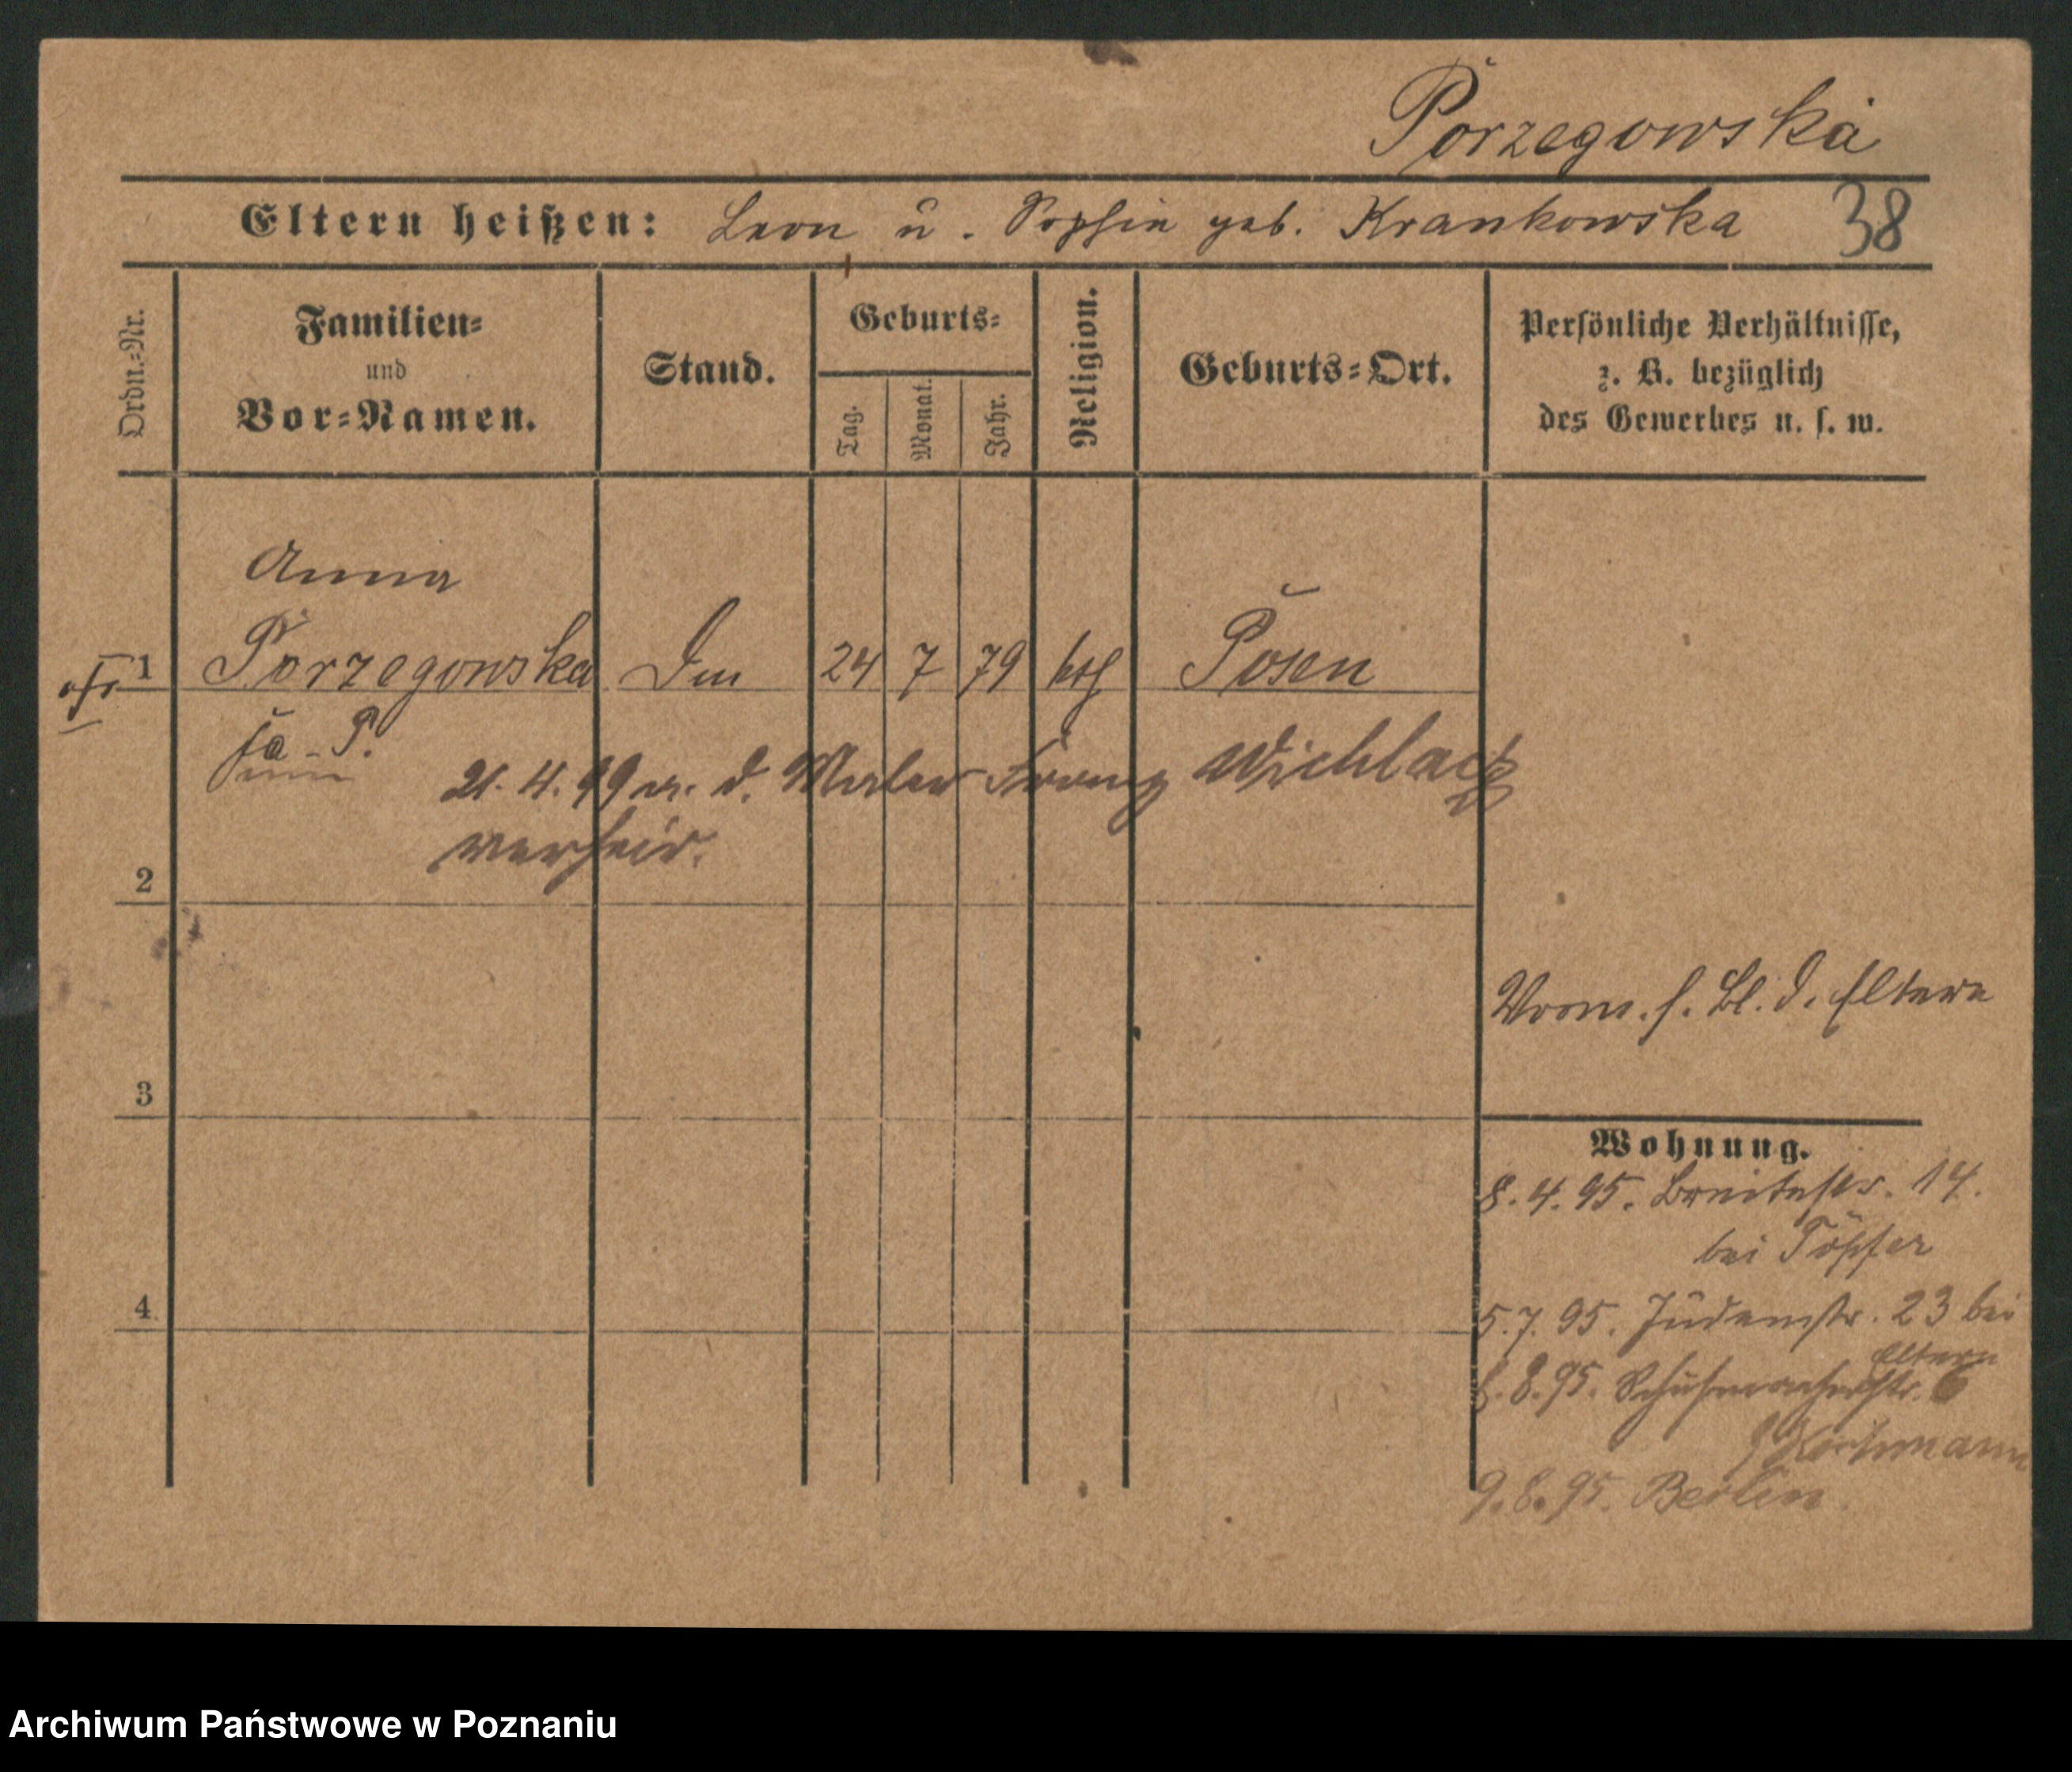 Porzegowska
Eltern heißen: Leon u. Sophie geb. Krankowska 38
Ordn.=Nr.
Familien=
und
Vor=Namen.
Stand.
Geburts=
Tag.
Monat.
Jahr.
Religion.
Geburts=Ort.
Persönliche Verhältnisse,
z. B. bezüglich
des Gewerbes u. s. w.
Anna
1 Porzegowska 24 7 79 kth Posen
21. 4. 99 m. d. Maler Franz
verheir.
2
3
4
Vorm. s. Bl. d. Eltern
Wohnung.
8. 4. 95. Breitestr. 14.
bei Töpfer
5. 7. 95. Judenstr. 23 bei
Eltern
8. 95. Schuhmacherstr. 6
9. 8. 95. Berlin.
Archiwum Państwowe w Poznaniu